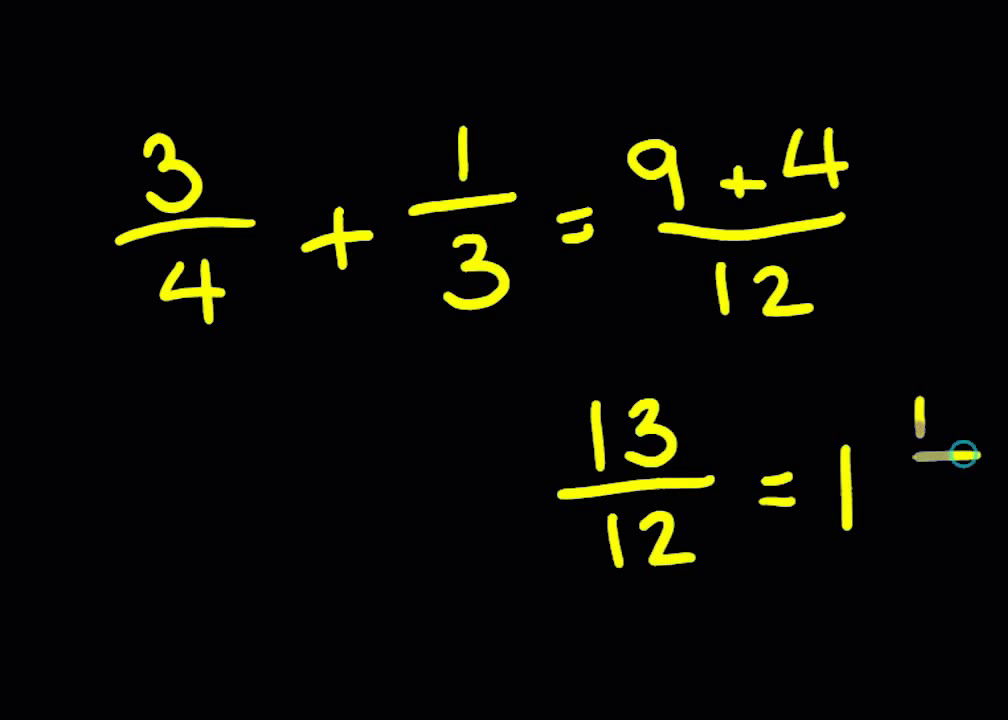 3/4 + 1/3 = 9 + 4/12
13/12 = 1 1/